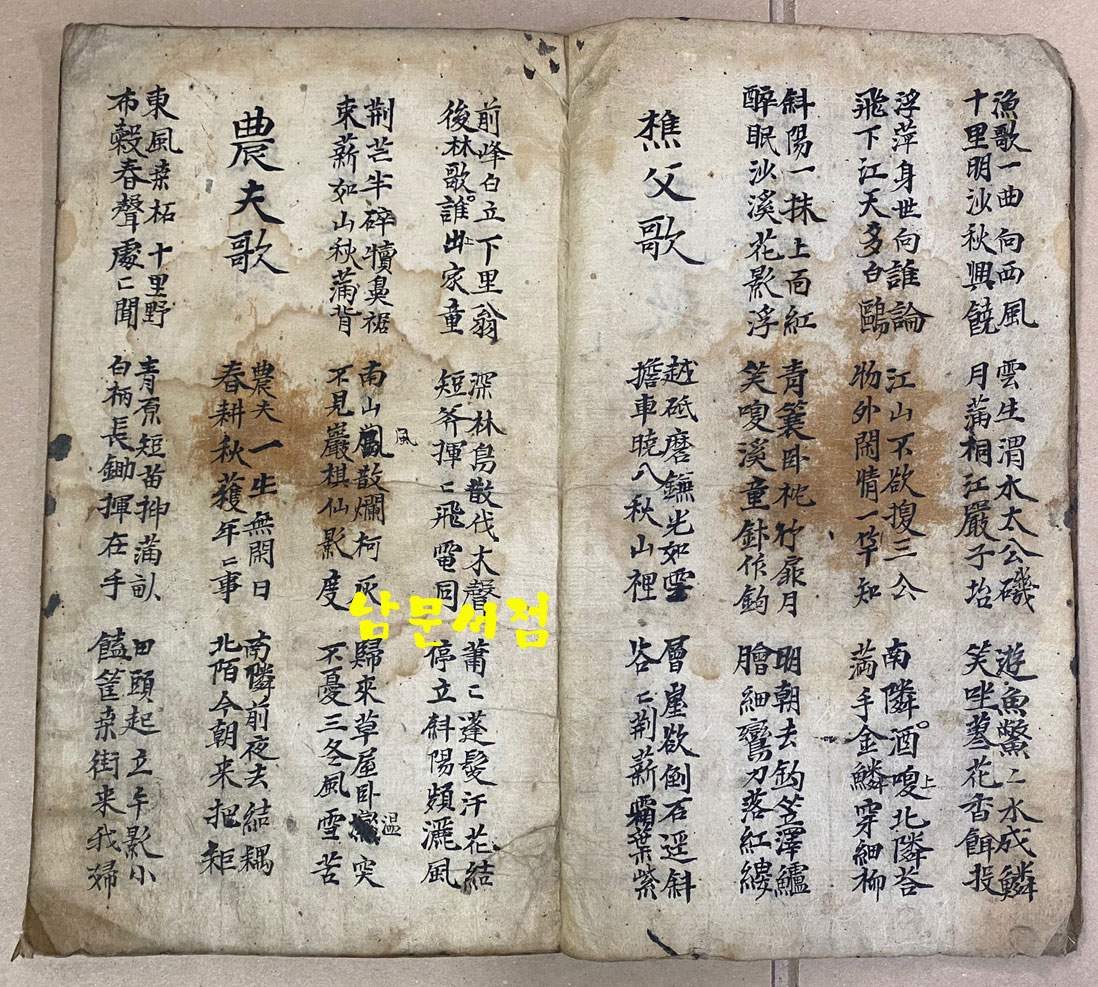 漁歌一曲向西風
十里明沙秋興饒
雲生渭水太公磯
月蒲桐江嚴子坮
遊魚鱉〻水成鱗
笑坐蓼花香餌投
浮萍身世向誰論
飛下江天多白鷗
江山不欲搜三公
物外閑情一竿知
南隣酒嗄上北隣答
滿手金鱗穿細柳
斜陽一抹上面紅
醉眠沙溪花影浮
青簑卧枕竹扉月
笑嗄溪童針作鈎
明朝去釣笠澤鱸
膾細鸞刀落紅縷
樵父歌
越砥磨鐮光如雪
擔車曉入秋山裡
層崖欲倒石逕斜
谷〻荊薪霜葉紫
前峰白立下里翁
後林歌誰出上家童
深林鳥散伐木聲
短斧揮〻飛電同
蕭〻蓬髮汗花結
停立斜陽頻灑風
荊芒半碎犢鼻裾
束薪如山秋蒲背
南山風散爛柯灰
不見巖棋仙影度
歸來草屋卧溫突
不憂三冬風雪苦
農夫歌
農夫一生無閑日
春耕秋穫年〻事
南隣前夜去結耦
北陌今朝來把耟
東風桑柘十里野
布穀春聲處〻聞
青原短苗抻蒲畝
白柄長鋤揮在手
田頭起立午影小
饁筐桑街来我婦
남문서점